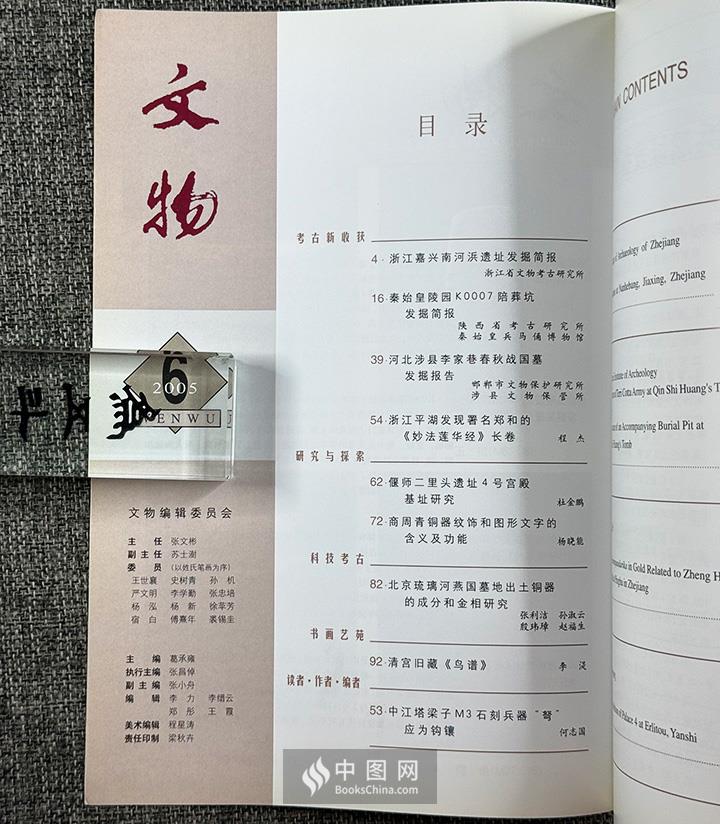 文物
6
2005
WENWU
文物编辑委员会
主 任 张文彬
副主任 苏士澍
委 员 (以姓氏笔画为序)
王世襄 史树青 孙 机
严文明 李学勤 张忠培
杨 泓 杨 新 徐苹芳
宿 白 傅熹年 裘锡圭
主 编 葛承雍
执行主编 张昌倬
副主编 张小舟
编 辑 李 力 李缙云
郑 彤 王 霞
美术编辑 程星涛
责任印制 梁秋卉
目 录
考古新收获
4·浙江嘉兴南河浜遗址发掘简报
浙江省文物考古研究所
16·秦始皇陵园K0007陪葬坑
发掘简报
陕西省考古研究所
秦始皇兵马俑博物馆
39·河北涉县李家巷春秋战国墓
发掘报告
邯郸市文物保护研究所
涉县文物保管所
54·浙江平湖发现署名郑和的
《妙法莲华经》长卷 程 杰
研究与探索
62·偃师二里头遗址4号宫殿
基址研究 杜金鹏
72·商周青铜器纹饰和图形文字的
含义及功能 杨晓能
科技考古
82·北京琉璃河燕国墓地出土铜器
的成分和金相研究
张利洁 孙淑云
殷玮璋 赵福生
书画艺苑
92·清宫旧藏《鸟谱》 李 湜
读者·作者·编者
53·中江塔梁子M3石刻兵器“弩”
应为钩镶 何志国
CONTENTS
Archaeology of Zhejiang
Nanhebang, Jiaxing, Zhejiang
Institute of Archeology
Terra Cotta Army at Qin Shi Huang's T
of an Accompanying Burial Pit at
Huang's Tomb
in Gold Related to Zheng H
in Zhejiang
of Palace 4 at Erlitou, Yanshi
中图网
BooksChina.com